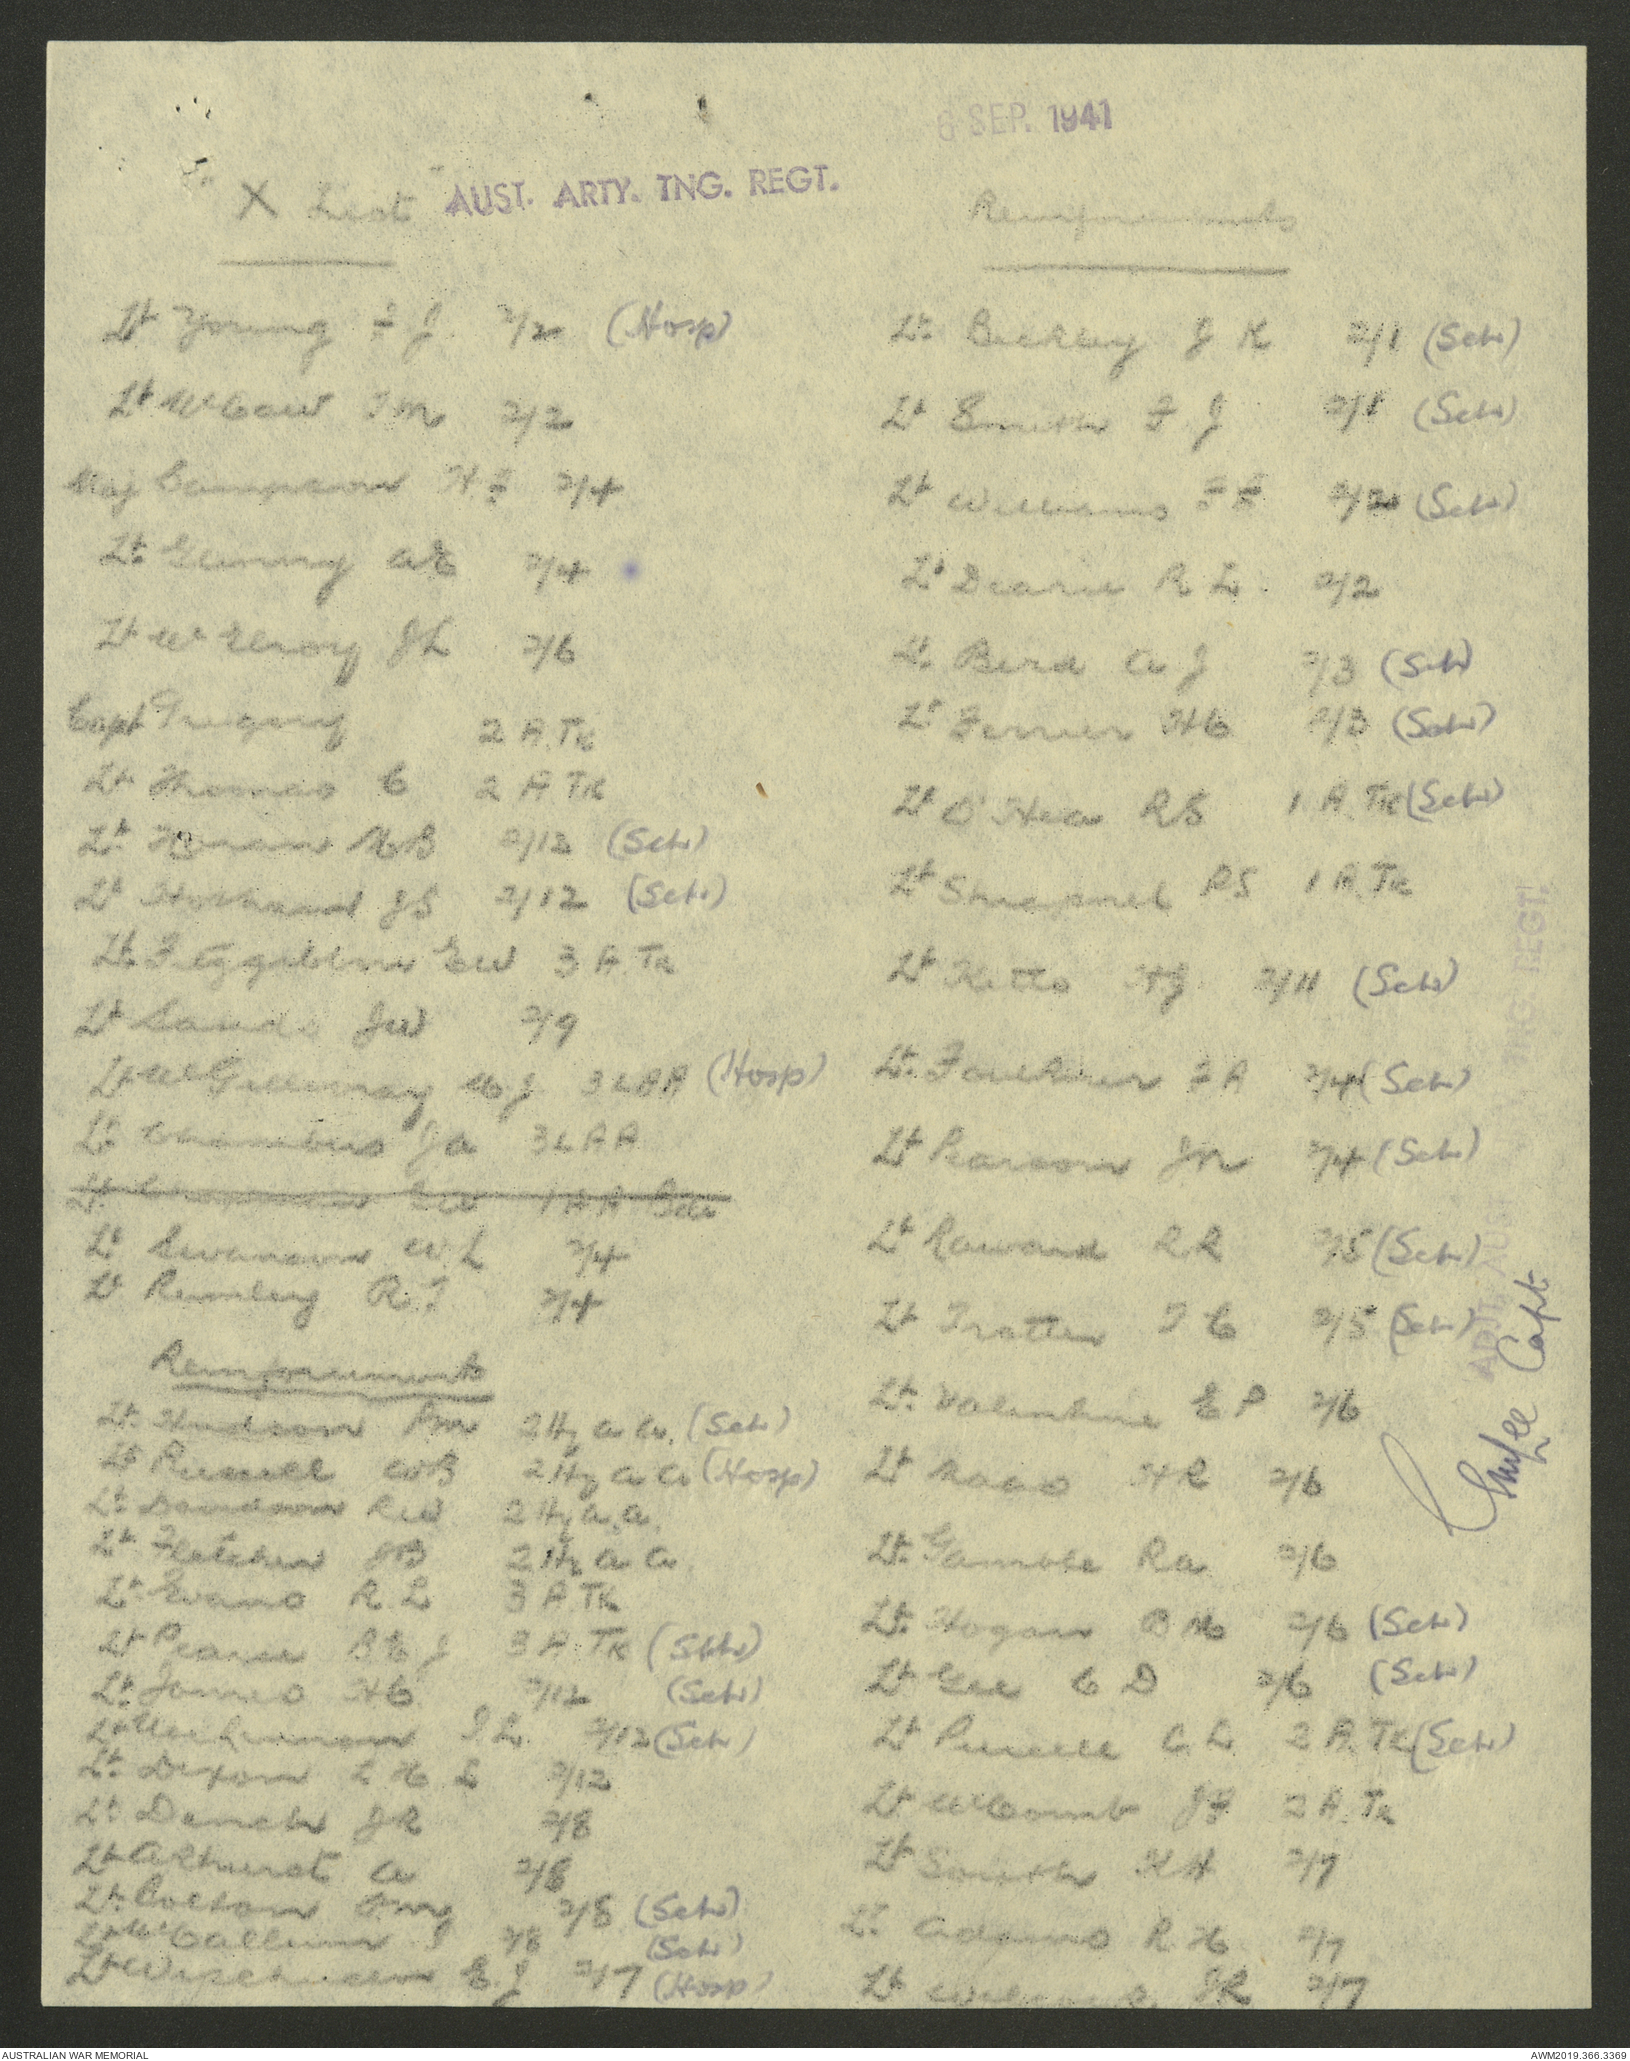 6 SEP. 1941
"X List" AUST. ARTY. TNG. REGT.
Lt Young F J 2/2 (Hosp)
Lt McCaw I M 2/2
Maj Thompson H F 2/4
Lt. Gunny A E 2/4
Lt McElroy J L 2/6
Capt Gregory 2 A.Tk
Lt Thomas C 2 A Tk
Lt. Horan M B 2/12 (Sch)
Lt Holland J S 2/12 (Sch)
Lt. Fitzgibbon E W 3 A Tk
Lt Sands J W 2/9
Lt McGillivray W J 3 LAA (Hosp)
Lt Chambers J A 3 LAA
Lt. Chapman E W 1 AA Bde
Lt Swanson W. L 2/4
Lt Rumley R. T 2/4
Reinforcements
Lt. Hudson P M 2 Hy AA. (Sch)
Lt Russell W B 2 Hy AA (Hosp)
Lt. Davidson R W 2 Hy A.A.
Lt. Fletcher J B 2 Hy AA
Lt. Evans R. L 3 A Tk
Lt Pearse B E J 3 A Tk (Sch)
Lt. James H C 2/12 (Sch)
Lt I. L. 2/12 (Sch)
Lt. Dixon L H S 2/12
Lt. Dench J R 2/8
Lt Akhurst A 2/8
Lt. Colton 2/8 (Sch)
Lt McCallum I 2/8 (Sch)
Lt E. J 2/7 (Hosp)
Reinforcements
Lt. Bickley J K 2/1 (Sch)
Lt Smith F. J 2/1 (Sch)
Lt Williams F F 2/2 (Sch)
Lt Dearie R L. 2/2
Lt. Bird A J 2/3 (Sch)
Lt Ferrier H C 2/3 (Sch)
Lt O'Hea R S 1 A.Tk (Sch)
Lt Shrapnel P S 1 A.Tk
Lt Kitto H J. 2/11 (Sch)
Lt. Faulkner F A 2/4 (Sch)
Lt Pearson J M 2/4 (Sch)
Lt Raward R R 2/5 (Sch)
Lt Trotter T C 2/5 (Sch)
Lt. Valentine E P 2/6
Lt H R 2/6
Lt. Gamble R A 2/6
Lt. Hogan B M 2/6 (Sch)
Lt Gee C D 2/6 (Sch)
Lt Purcell C L 2 A.Tk (Sch)
Lt McComb J F 2 A.Tk
Lt South K H 2/7
Lt. Adams R H. 2/7
Lt J R 2/7
Capt.
ADJT. AUST. TNG. REGT.
AUSTRALIAN WAR MEMORIAL
AWM2019.366.3369